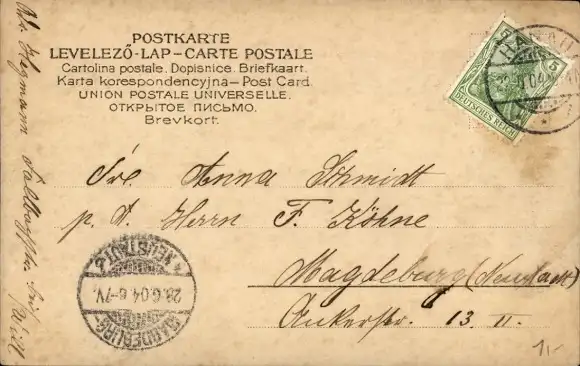 POSTKARTE
LEVELEZŐ-LAP-CARTE POSTALE
Cartolina postale. Dopisnice. Briefkaart.
Karta korespondencyjna-Post Card.
UNION POSTALE UNIVERSELLE.
ОТКРЫТОЕ ПИСЬМО.
Brevkort.
5 5
DEUTSCHES REICH
HANAU
Frl. Anna Schmidt
p. A. Herrn F. Köhne
Magdeburg (Neustadt)
Ankerstr. 13. II.
NEUSTADT
28.6.04.6-7V.
MAGDEBURG
1,-